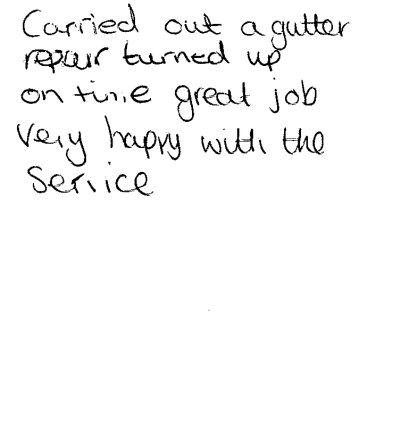 Carried out a gutter
repair turned up
on time great job
Very happy with the
Service